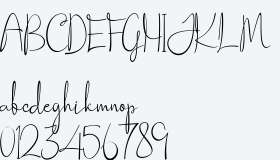 ABCDEFGHIJKLM
abcdefghikmnop
0123456789